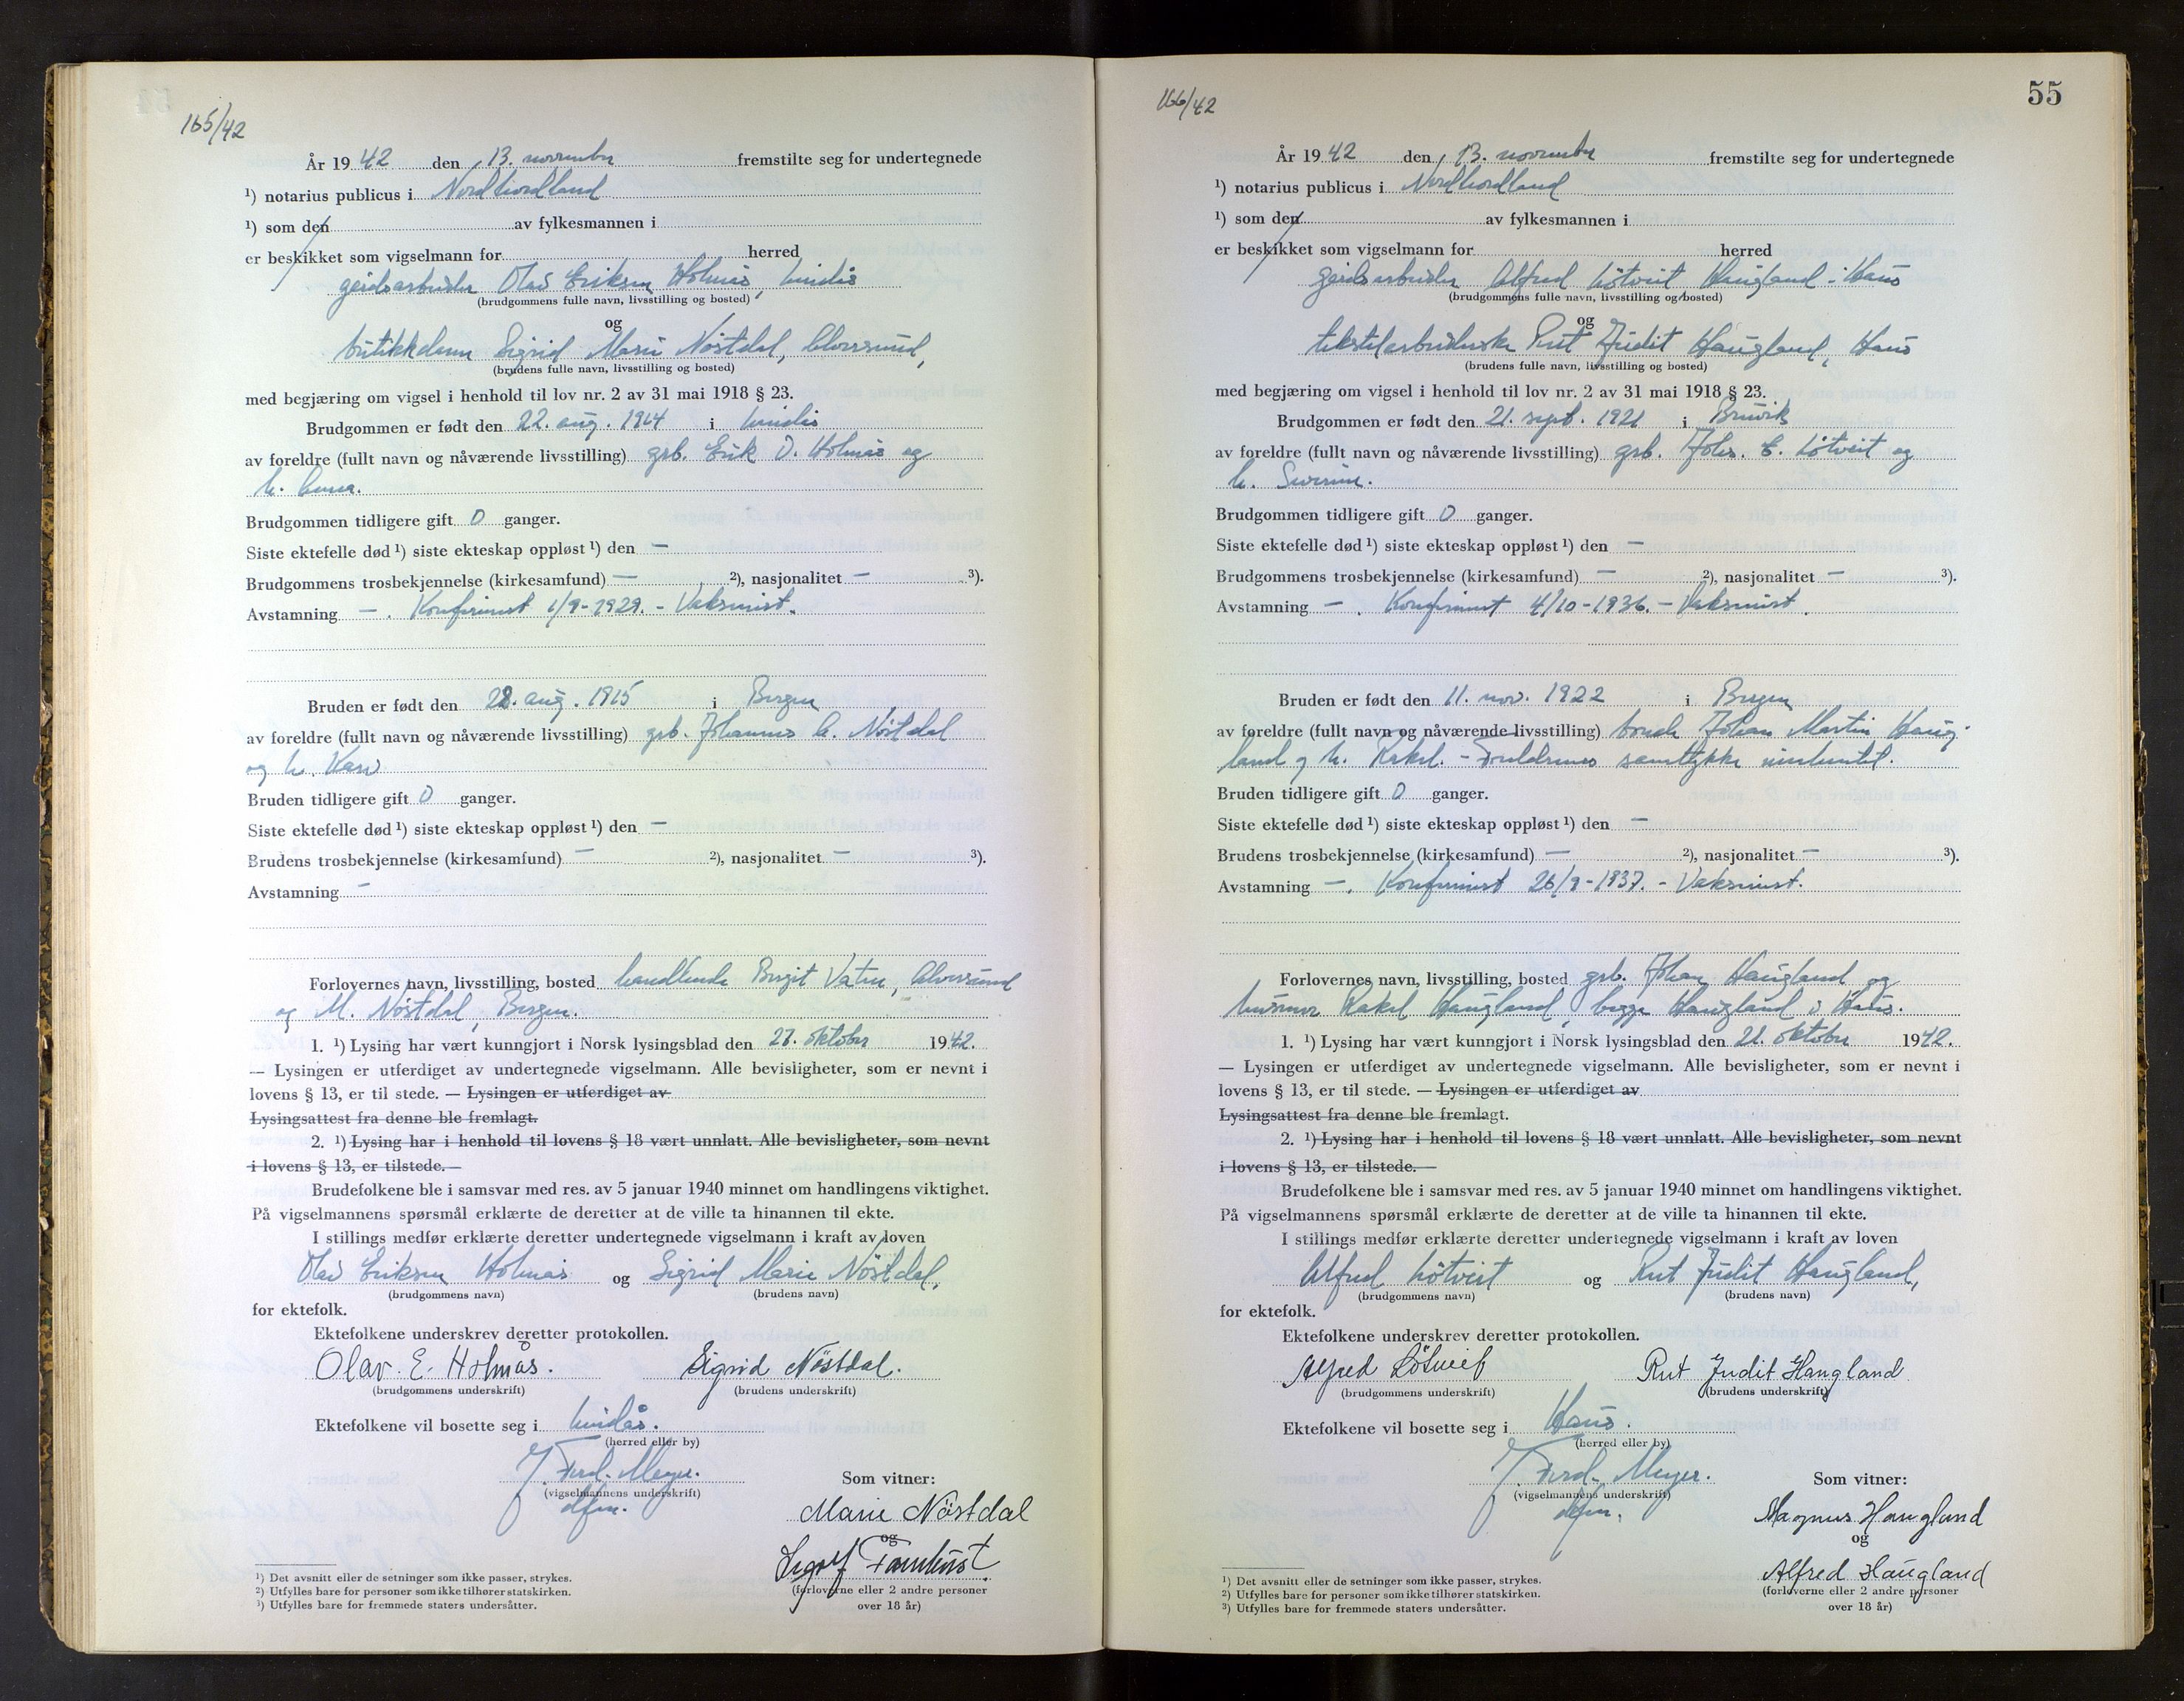 165/42
År 1942 den 13. november fremstilte seg for undertegnede
¹) notarius publicus i Nordhordland
¹) som den av fylkesmannen i
er beskikket som vigselmann for herred
gårdsarbeider Olav Eriksen Holmås, Lindås
(brudgommens fulle navn, livsstilling og bosted)
og
butikkdame Sigrid Marie Nöstdal, Alversund,
(brudens fulle navn, livsstilling og bosted)
med begjæring om vigsel i henhold til lov nr. 2 av 31 mai 1918 § 23.
Brudgommen er født den 22. aug. 1914 i Lindås
av foreldre (fullt navn og nåværende livsstilling) grb. Erik O. Holmås og
h. Anna.
Brudgommen tidligere gift 0 ganger.
Siste ektefelle død ¹) siste ekteskap oppløst ¹) den —
Brudgommens trosbekjennelse (kirkesamfund) — ²), nasjonalitet — ³).
Avstamning — . Konfirmert 1/9-1929. - Vaksinert.
Bruden er født den 28. aug. 1915 i Bergen
av foreldre (fullt navn og nåværende livsstilling) grb. Johannes A. Nöstdal
og h. Kari
Bruden tidligere gift 0 ganger.
Siste ektefelle død ¹) siste ekteskap oppløst ¹) den —
Brudens trosbekjennelse (kirkesamfund) — ²), nasjonalitet — ³).
Avstamning —
Forlovernes navn, livsstilling, bosted handlende Birgit Vatne, Alversund
og M. Nöstdal, Bergen.
1. ¹) Lysing har vært kunngjort i Norsk lysingsblad den 27. oktober 1942.
— Lysingen er utferdiget av undertegnede vigselmann. Alle bevisligheter, som er nevnt i
lovens § 13, er til stede. — Lysingen er utferdiget av
Lysingsattest fra denne ble fremlagt.
2. ¹) Lysing har i henhold til lovens § 18 vært unnlatt. Alle bevisligheter, som nevnt
i lovens § 13, er tilstede. —
Brudefolkene ble i samsvar med res. av 5 januar 1940 minnet om handlingens viktighet.
På vigselmannens spørsmål erklærte de deretter at de ville ta hinannen til ekte.
I stillings medfør erklærte deretter undertegnede vigselmann i kraft av loven
Olav Eriksen Holmås og Sigrid Marie Nöstdal,
(brudgommens navn) (brudens navn)
for ektefolk.
Ektefolkene underskrev deretter protokollen.
Olav. E. Holmås. Sigrid Nöstdal.
(brudgommens underskrift) (brudens underskrift)
Ektefolkene vil bosette seg i Lindås.
(herred eller by)
Ferd. Meyer.
(vigselmannens underskrift)
Som vitner:
Marie Nöstdal
og
(forloverne eller 2 andre personer
over 18 år)
¹) Det avsnitt eller de setninger som ikke passer, strykes.
²) Utfylles bare for personer som ikke tilhører statskirken.
³) Utfylles bare for fremmede staters undersåtter.
166/42
55
År 1942 den 13. november fremstilte seg for undertegnede
¹) notarius publicus i Nordhordland
¹) som den av fylkesmannen i
er beskikket som vigselmann for herred
gårdsarbeider Alfred Lötveit Haugland i Haus
(brudgommens fulle navn, livsstilling og bosted)
og
tekstilarbeiderske Rut Judit Haugland, Haus
(brudens fulle navn, livsstilling og bosted)
med begjæring om vigsel i henhold til lov nr. 2 av 31 mai 1918 § 23.
Brudgommen er født den 21. sept. 1921 i Bruvik
av foreldre (fullt navn og nåværende livsstilling) grb. Johs. E. Lötveit og
h. Severine.
Brudgommen tidligere gift 0 ganger.
Siste ektefelle død ¹) siste ekteskap oppløst ¹) den —
Brudgommens trosbekjennelse (kirkesamfund) — ²), nasjonalitet — ³).
Avstamning — . Konfirmert 4/10-1936. - Vaksinert.
Bruden er født den 11. nov. 1922 i Bergen
av foreldre (fullt navn og nåværende livsstilling) bruk Johan Martin Haug-
land og h. Rakel. - Foreldrenes samtykke innhentet.
Bruden tidligere gift 0 ganger.
Siste ektefelle død ¹) siste ekteskap oppløst ¹) den —
Brudens trosbekjennelse (kirkesamfund) — ²), nasjonalitet — ³).
Avstamning — . Konfirmert 26/9-1937. - Vaksinert.
Forlovernes navn, livsstilling, bosted grb. Johan Haugland og
husmor Rakel Haugland, begge Haugland i Haus.
1. ¹) Lysing har vært kunngjort i Norsk lysingsblad den 21. oktober 1942.
— Lysingen er utferdiget av undertegnede vigselmann. Alle bevisligheter, som er nevnt i
lovens § 13, er til stede. — Lysingen er utferdiget av
Lysingsattest fra denne ble fremlagt.
2. ¹) Lysing har i henhold til lovens § 18 vært unnlatt. Alle bevisligheter, som nevnt
i lovens § 13, er tilstede. —
Brudefolkene ble i samsvar med res. av 5 januar 1940 minnet om handlingens viktighet.
På vigselmannens spørsmål erklærte de deretter at de ville ta hinannen til ekte.
I stillings medfør erklærte deretter undertegnede vigselmann i kraft av loven
Alfred Lötveit og Rut Judit Haugland,
(brudgommens navn) (brudens navn)
for ektefolk.
Ektefolkene underskrev deretter protokollen.
Alfred Lötveit Rut Judit Haugland
(brudgommens underskrift) (brudens underskrift)
Ektefolkene vil bosette seg i Haus.
(herred eller by)
Ferd. Meyer.
(vigselmannens underskrift)
Som vitner:
Magnus Haugland
og
Alfred Haugland
(forloverne eller 2 andre personer
over 18 år)
¹) Det avsnitt eller de setninger som ikke passer, strykes.
²) Utfylles bare for personer som ikke tilhører statskirken.
³) Utfylles bare for fremmede staters undersåtter.